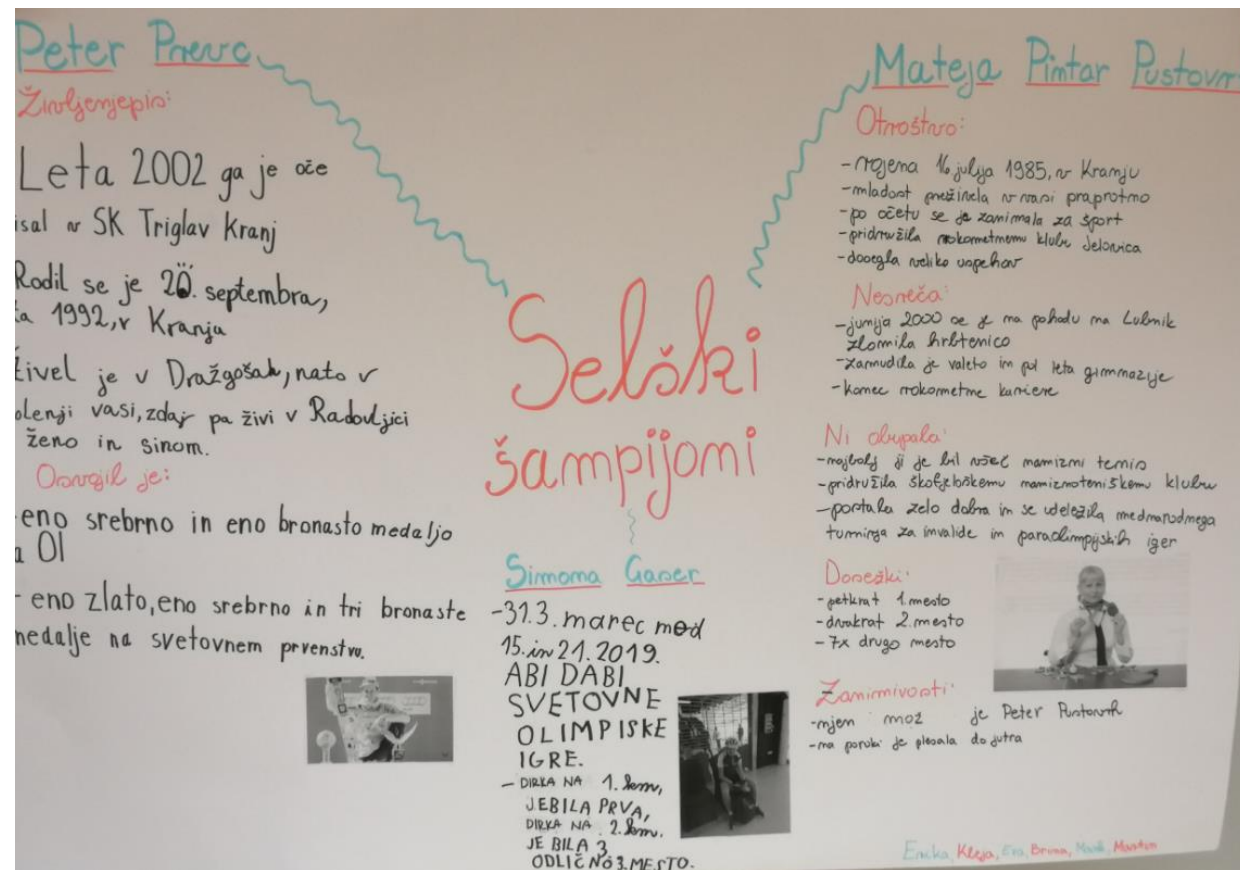 Peter Prevc
Življenjepis:
Leta 2002 ga je oče
isal v SK Triglav Kranj
Rodil se je 20. septembra,
ta 1992, v Kranju
živel je v Dražgošah, nato v
olenji vasi, zdaj pa živi v Radovljici
ženo in sinom.
Osvojil je:
- eno srebrno in eno bronasto medaljo
a OI
- eno zlato, eno srebrno in tri bronaste
medalje na svetovnem prvenstvu.
Selški
šampijoni
Simona Gaser
-31.3. marec med
15. in 21. 2019.
ABI DABI
SVETOVNE
OLIMPISKE
IGRE.
- DIRKA NA 1. km,
JEBILA PRVA,
DIRKA NA 2. km.
JE BILA 3
ODLIČNO 3. MESTO.
Mateja Pintar Pustovrh
Otroštvo:
- rojena 16. julija 1985, v Kranju
- mladost preživela v vasi praprotno
- po očetu se je zanimala za šport
- pridružila rokometnemu klubu Jelovica
- dosegla veliko uspehov
Nesreča:
- junija 2000 se je na pohodu na Lubnik
zlomila hrbtenico
- zamudila je celo in pol leta gimnazije
- konec rokometne kariere
Ni obupala:
- najbolj ji je bil všeč namizni tenis
- pridružila škofjeloškemu namiznoteniškemu klubu
- postala zelo dobra in se udeležila mednarodnega
turnirja za invalide in paraolimpijskih iger
Dosežki:
- petkrat 1. mesto
- dvakrat 2. mesto
- 7x drugo mesto
Zanimivosti:
- njen mož je Peter Pustovrh
- na poroki je plesala do jutra
Enika, Kleja, Eva, Brina, Mark, Martin